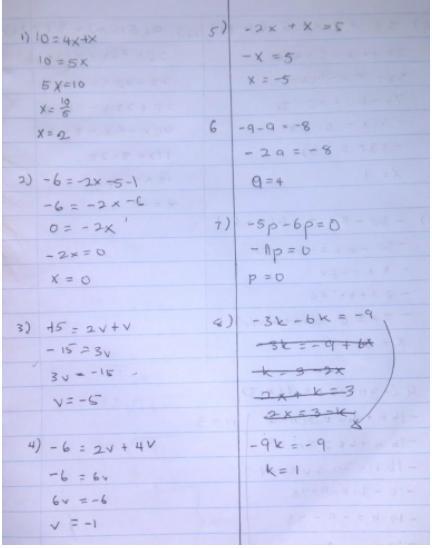 1) 10 = 4x+x
10 = 5x
5x=10
x= 10/5
x= 2
2) -6 = -2x -5-1
-6 = -2x-6
0 = -2x
-2x = 0
x = 0
3) -15 = 2v+v
-15 = 3v
3v = -15
v = -5
4) -6 = 2v + 4v
-6 = 6v
6v = -6
v = -1
5) -2x + x = 5
-x = 5
x = -5
6 -a-a = -8
-2a = -8
a=4
7) -5p-6p=0
-11p=0
p=0
8) -3k -6k = -9
-3k = -9 + 6k
2x + k = 3
2x = 3-k
-9k = -9
k=1